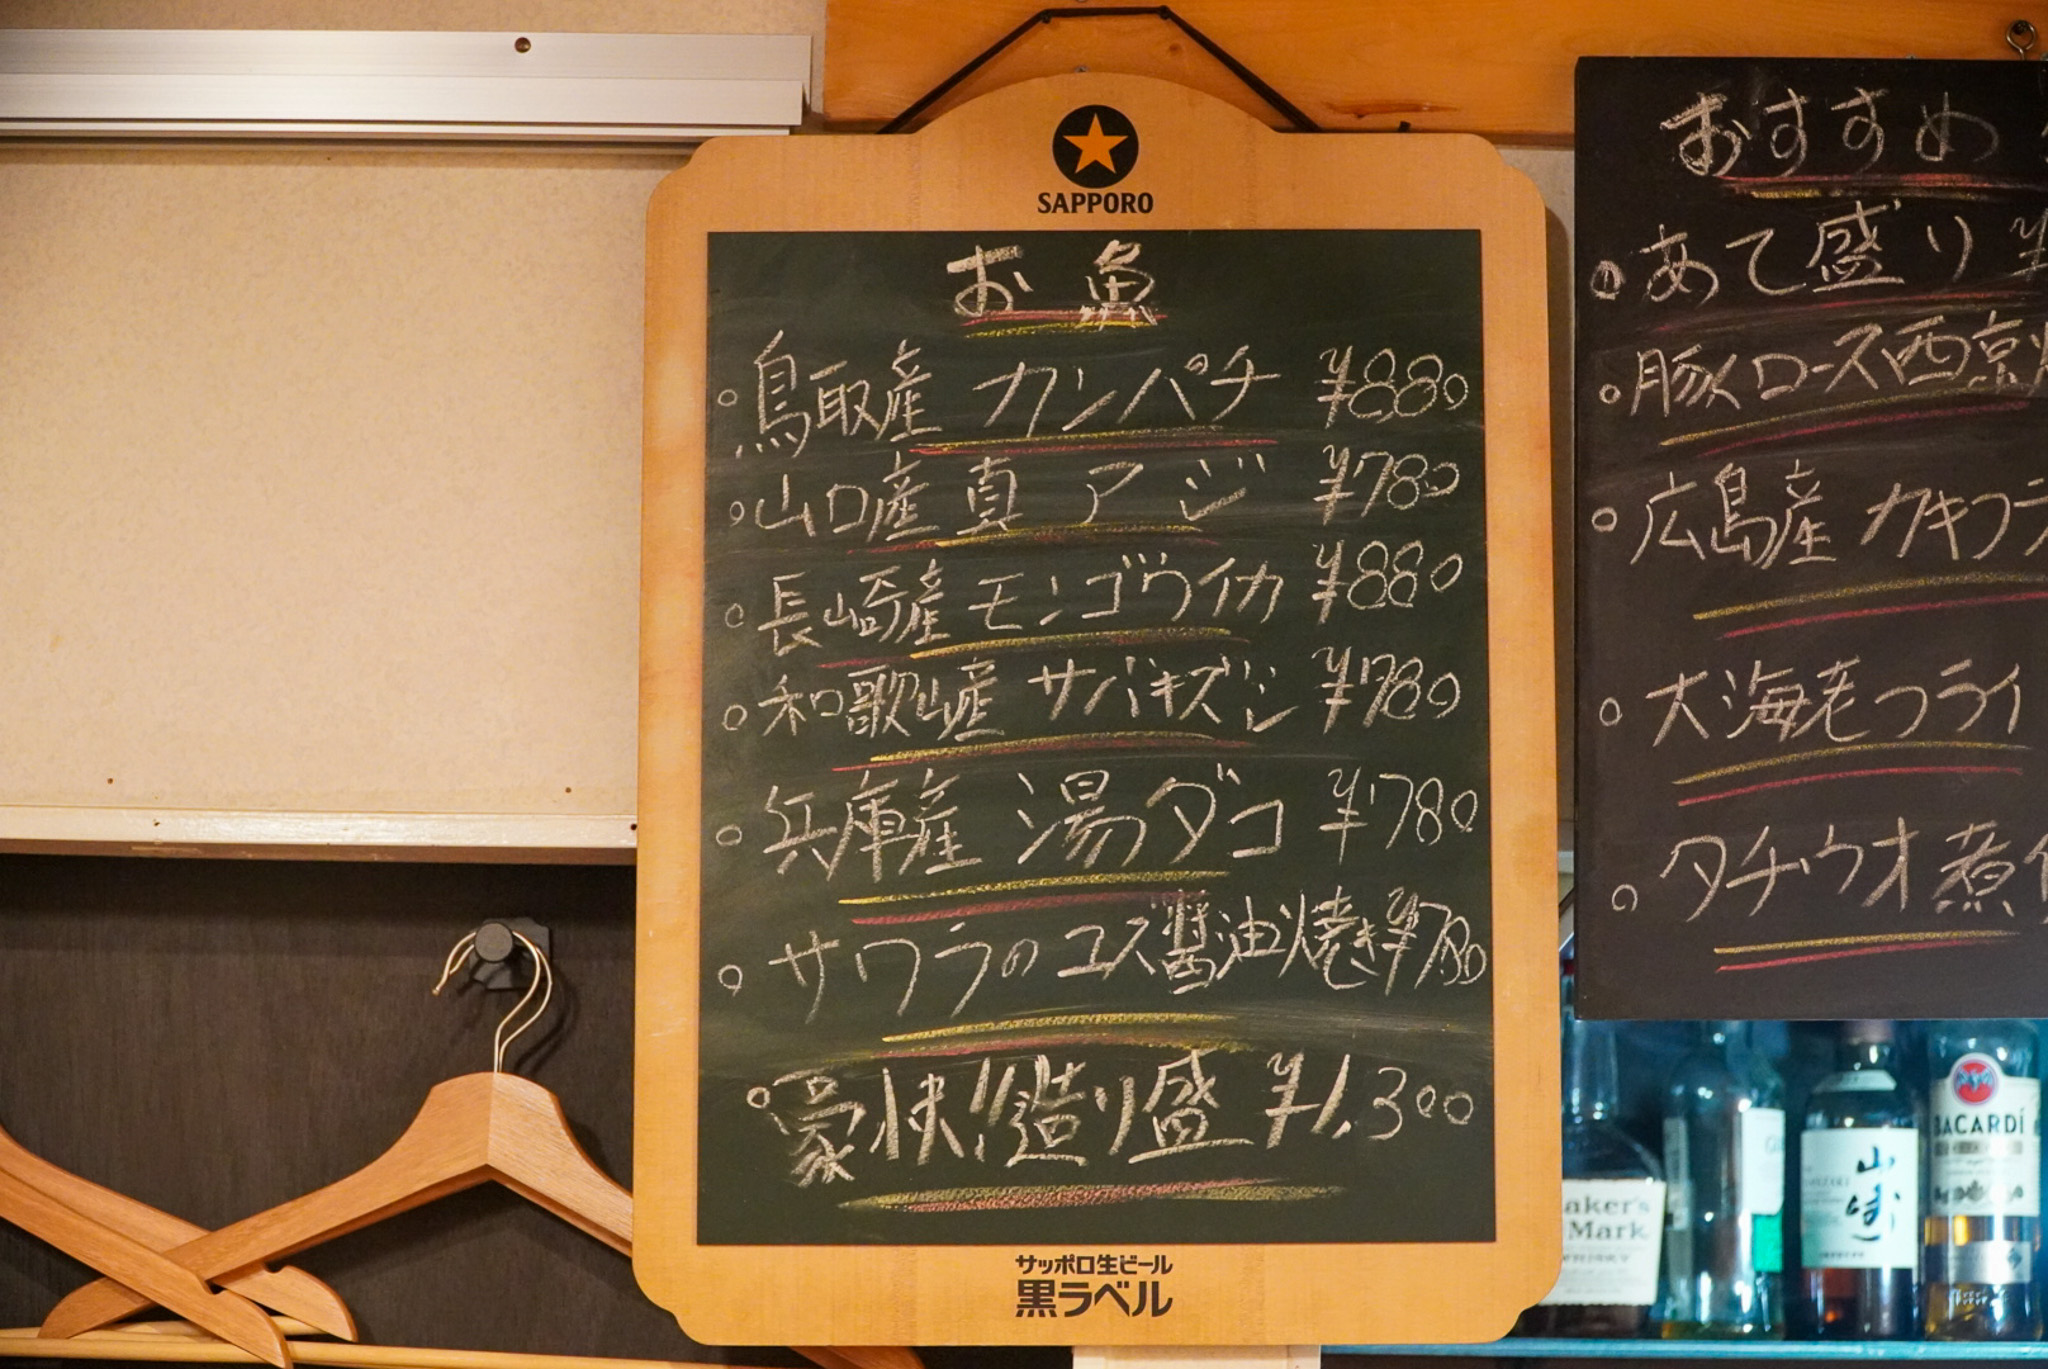 SAPPORO
お魚
○鳥取産 カンパチ ¥880
○山口産 真アジ ¥780
○長崎産 モンゴウイカ ¥880
○和歌山産 サバキズシ ¥780
○兵庫産 湯ダコ ¥780
○サワラのユズ醤油焼き ¥780
○豪快!!造り盛 ¥1,300
サッポロ生ビール
黒ラベル
おすすめ
○あて盛り ¥
○豚ロース西京
○広島産 カキフラ
○大海老フライ
○タチウオ煮
aker's
Mark
WHISKY
山崎
BACARDÍ